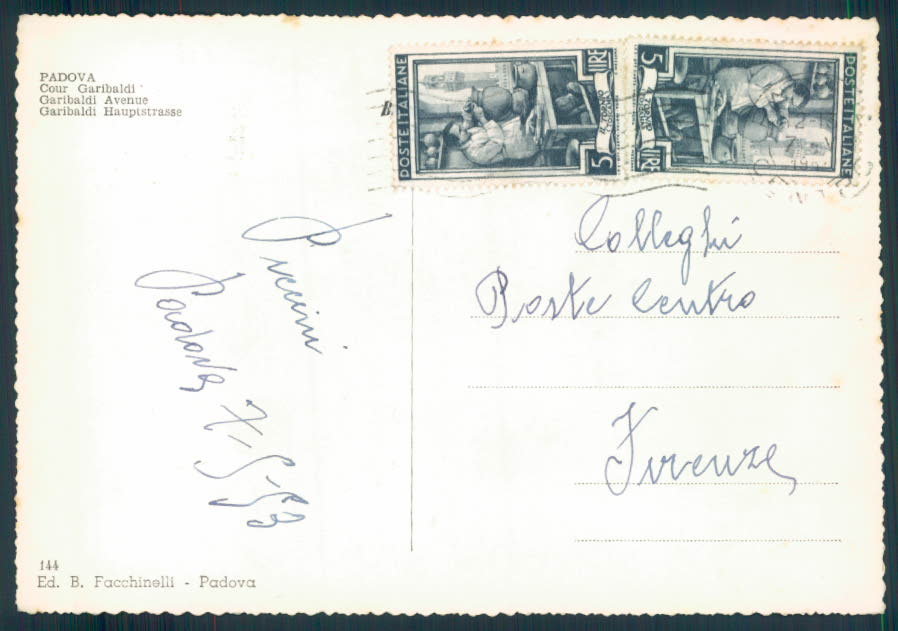 PADOVA
Cour Garibaldi
Garibaldi Avenue
Garibaldi Hauptstrasse
POSTE ITALIANE
5 LIRE
IL TORNIO
POSTE ITALIANE
5 LIRE
IL TORNIO
Colleghi
Poste Centro
Firenze
Puccini
Padova 7-5-53
144
Ed. B. Facchinelli - Padova